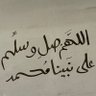 اللهم صل وسلم
على نبينا محمد